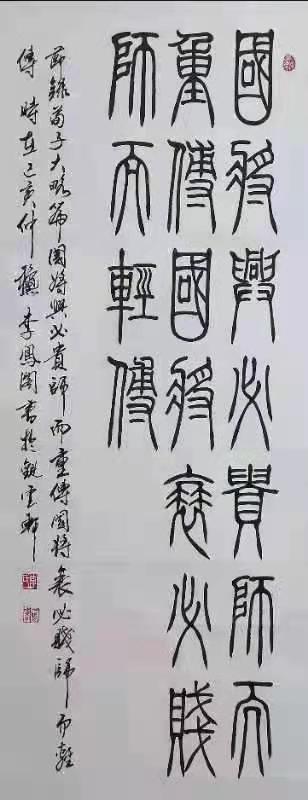 國將興必貴師而
重傅國將衰必賤
師而輕傅
節錄荀子大略篇國將興必貴師而重傅國將衰必賤師而輕
傅 時在己亥仲龝李鳳書於雲軒